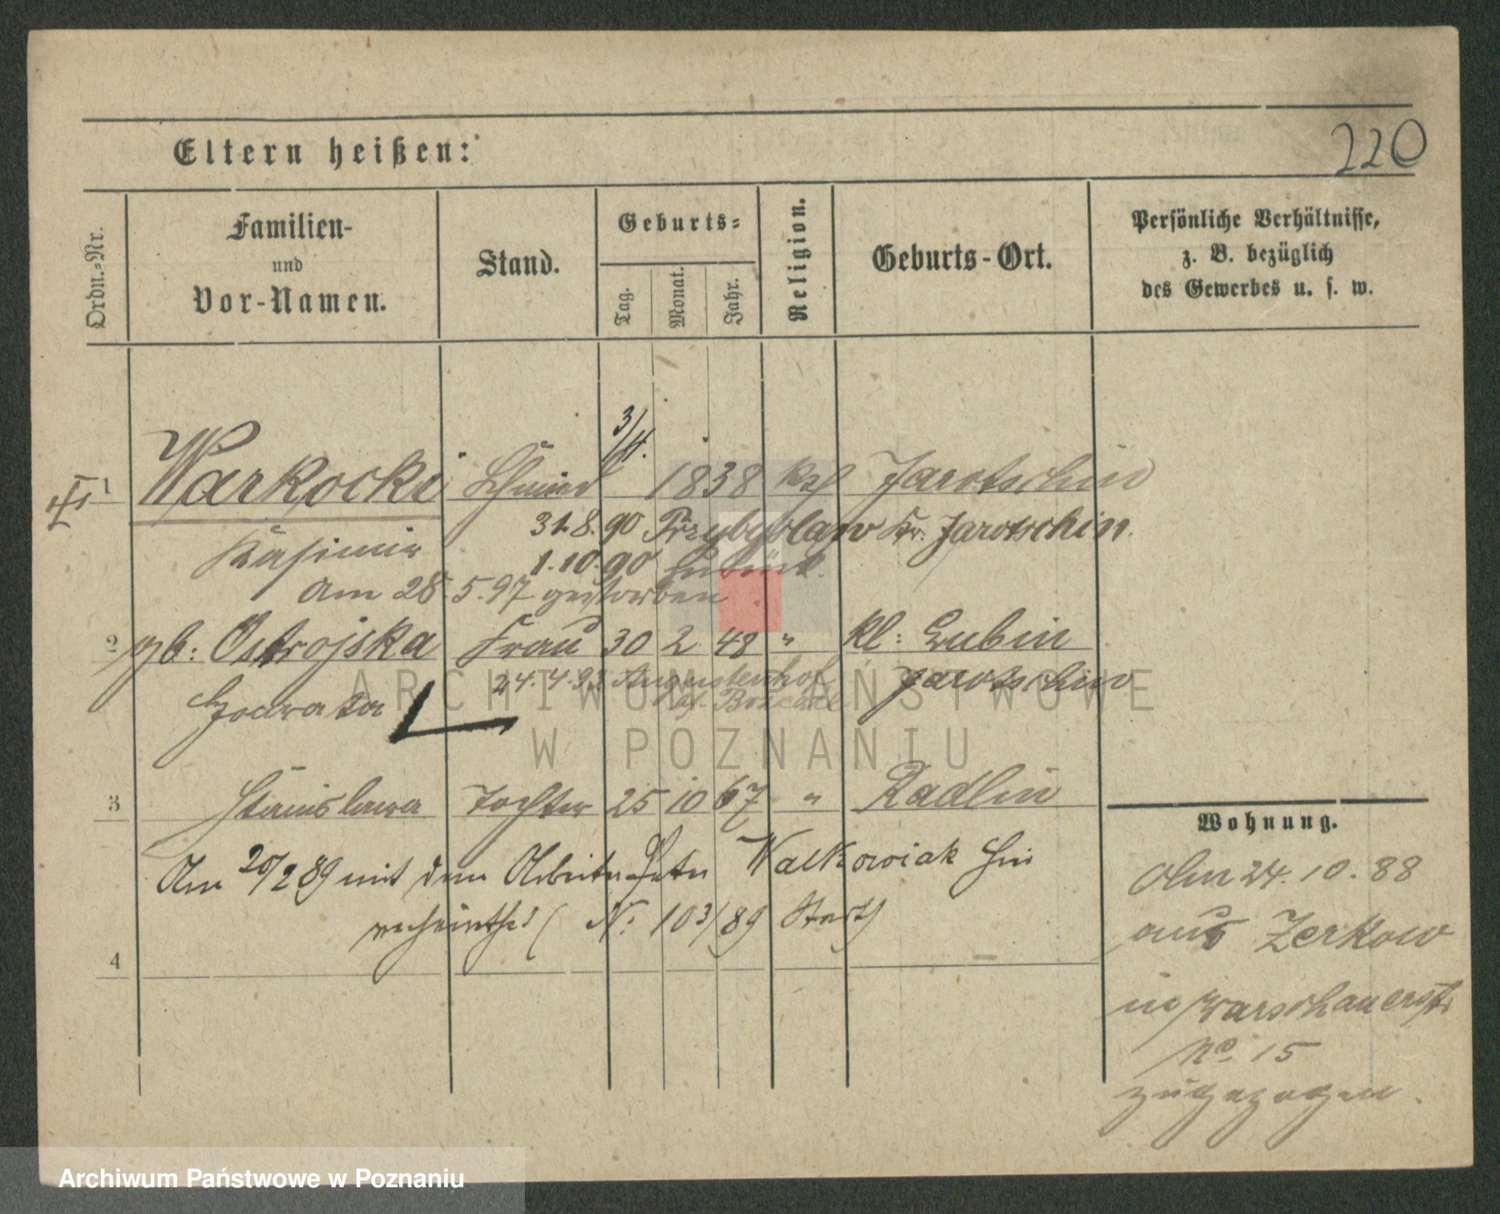 220
Eltern heißen:
Ordn.-Nr.
Familien-
und
Vor-Namen.
Stand.
Geburts-
Tag.
Monat.
Jahr.
Religion.
Geburts-Ort.
Persönliche Verhältnisse,
z. B. bezüglich
des Gewerbes u. s. w.
3/4.
1 Warkocki Schmied 1838 kath Jarotschin
31.8.90 Przybyslaw Kr. Jarotschin.
Kasimir 1.10.90 zurück.
Am 28.5.97 gestorben
2 gb: Ostrojska Frau 30 2 48 " kl: Lubin
24.4.93 Augustenhof Jarotschin
3 Stanislawa Tochter 25 10 67 " Radlin
Am 20/2 89 mit dem Arbeiter Walkowiak
verheirathet ( N: 103/89 )
4
Wohnung.
Am 24.10.88
aus Zerkow
in Warschauerstr
No. 15
zugezogen.
ARCHIWUM PAŃSTWOWE
W POZNANIU
Archiwum Państwowe w Poznaniu